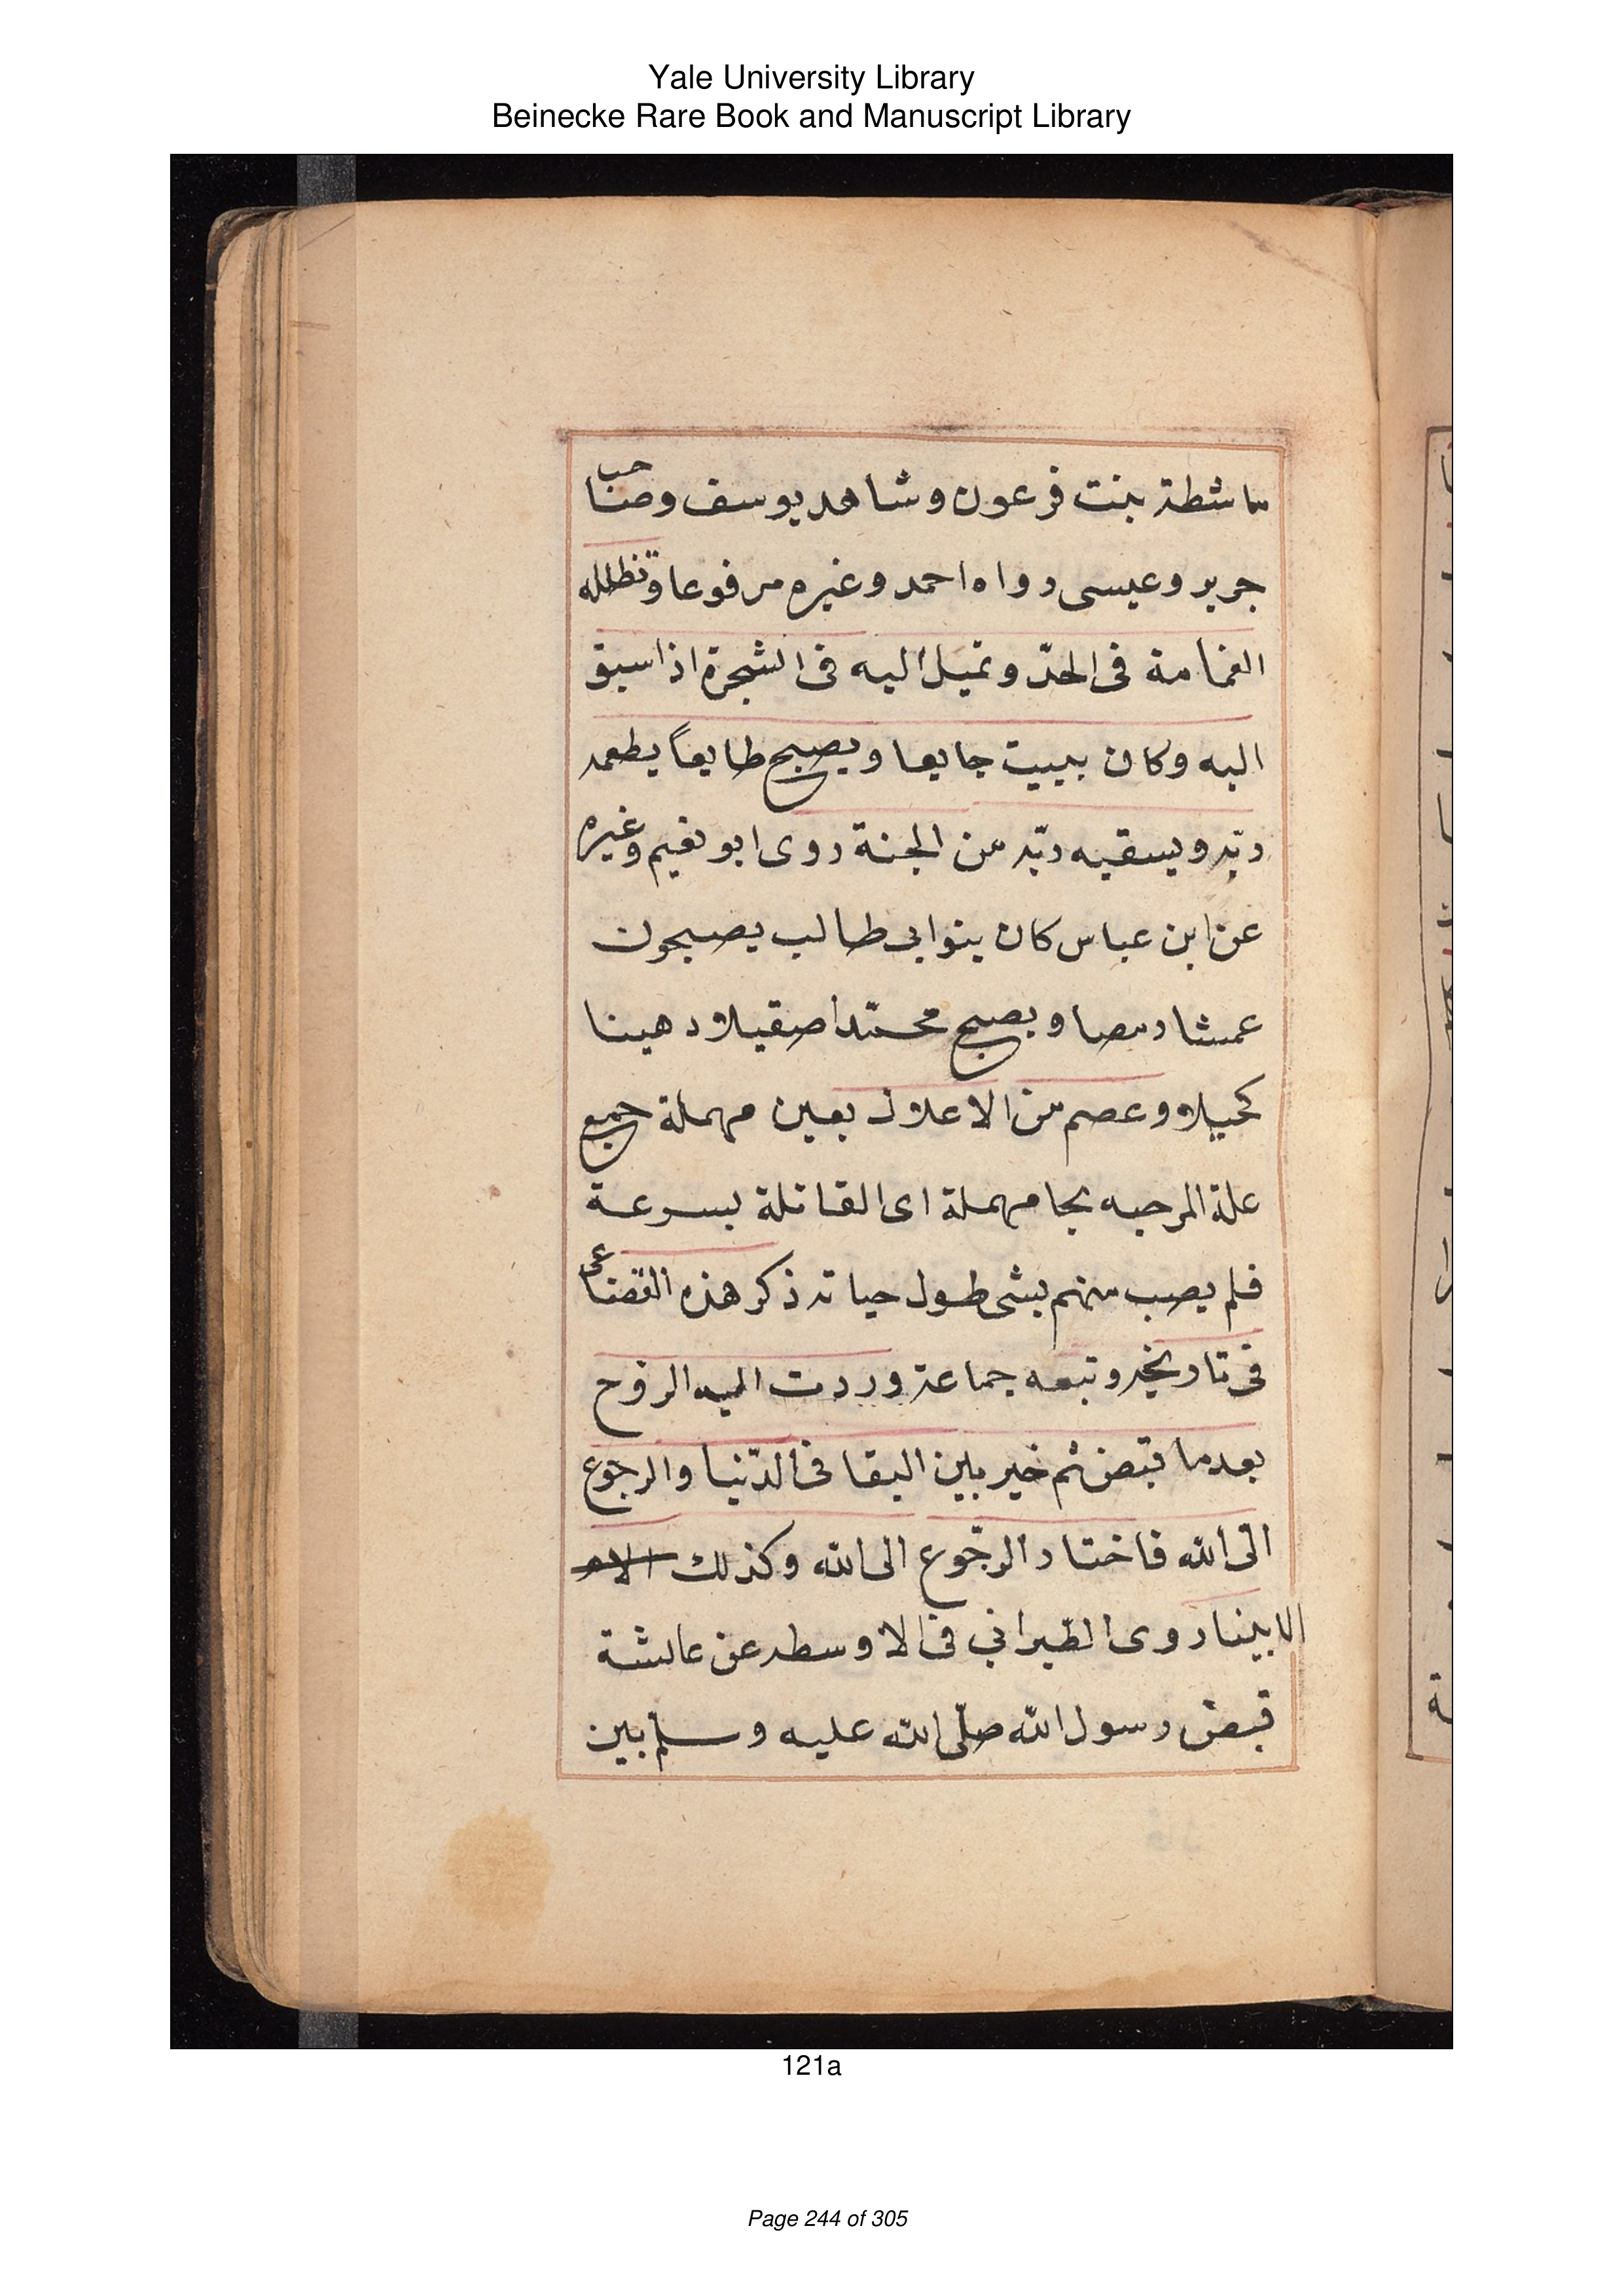 Yale University Library
Beinecke Rare Book and Manuscript Library
ماشطة بنت فرعون وشاهد يوسف وصاحب
جرير وعيسى رواه احمد وغيره مرفوعا وتظلله
الغمامة فى الحرّ وتميل اليه فى الشجرة اذا سبق
اليه وكان يبيت جايعا ويصبح طايعاً يطعمه
ربّه ويسقيه ربّه من الجنة روى ابو نعيم وغيره
عن ابن عباس كان بنوا بى طالب يصبحون
عمشا رمصا ويصبح محمّدا صقيلا دهينا
كحيلا وعصم من الاعلال بعين مهملة جميع
علة المرحبه بحا مهملة اى القاتلة بسرعة
فلم يصب منهم بشى طول حياته ذكر هذه القضاعى
فى تاريخه وتبعه جماعة وردت اليه الروح
بعدما قبض ثم خير بين البقا فى الدّنيا والرجوع
الى الله فاختار الرجّوع الى الله وكذلك الام
الابينا روى الطّبرانى فى الاوسطه عن عائشة
قبض رسول الله صلّى الله عليه وسلم بين
121a
Page 244 of 305